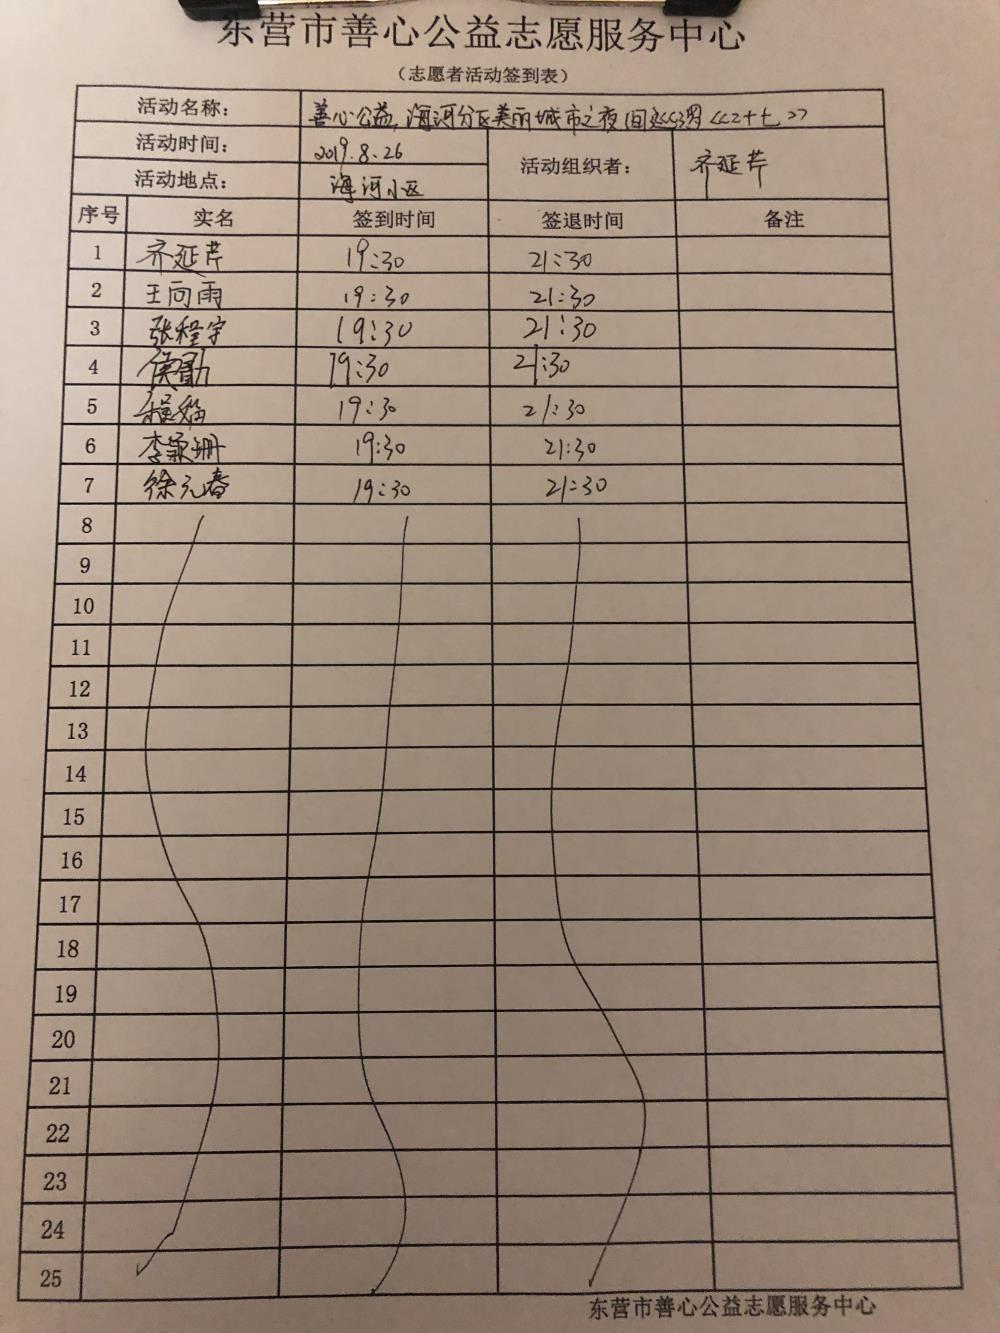 东营市善心公益志愿服务中心
（志愿者活动签到表）
活动名称： 善心公益，海河分区美丽城市之夜间巡逻<<二十七>>
活动时间： 2019.8.26 活动组织者： 齐延芹
活动地点： 海河小区
序号 实名 签到时间 签退时间 备注
1 齐延芹 19:30 21:30
2 王向雨 19:30 21:30
3 张程宇 19:30 21:30
4 侯勋 19:30 21:30
5 19:30 21:30
6 李颖珊 19:30 21:30
7 徐元春 19:30 21:30
8
9
10
11
12
13
14
15
16
17
18
19
20
21
22
23
24
25
东营市善心公益志愿服务中心